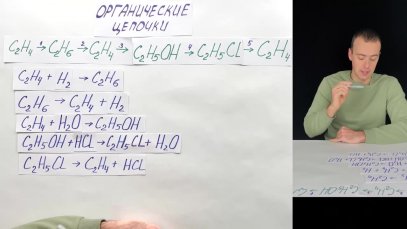 ОРГАНИЧЕСКИЕ
ЦЕПОЧКИ
C₂H₄ →¹ C₂H₆ →² C₂H₄ →³ C₂H₅OH →⁴ C₂H₅CL →⁵ C₂H₄
C₂H₄ + H₂ → C₂H₆
C₂H₆ → C₂H₄ + H₂
C₂H₄ + H₂O → C₂H₅OH
C₂H₅OH + HCL → C₂H₅CL + H₂O
C₂H₅CL → C₂H₄ + HCL